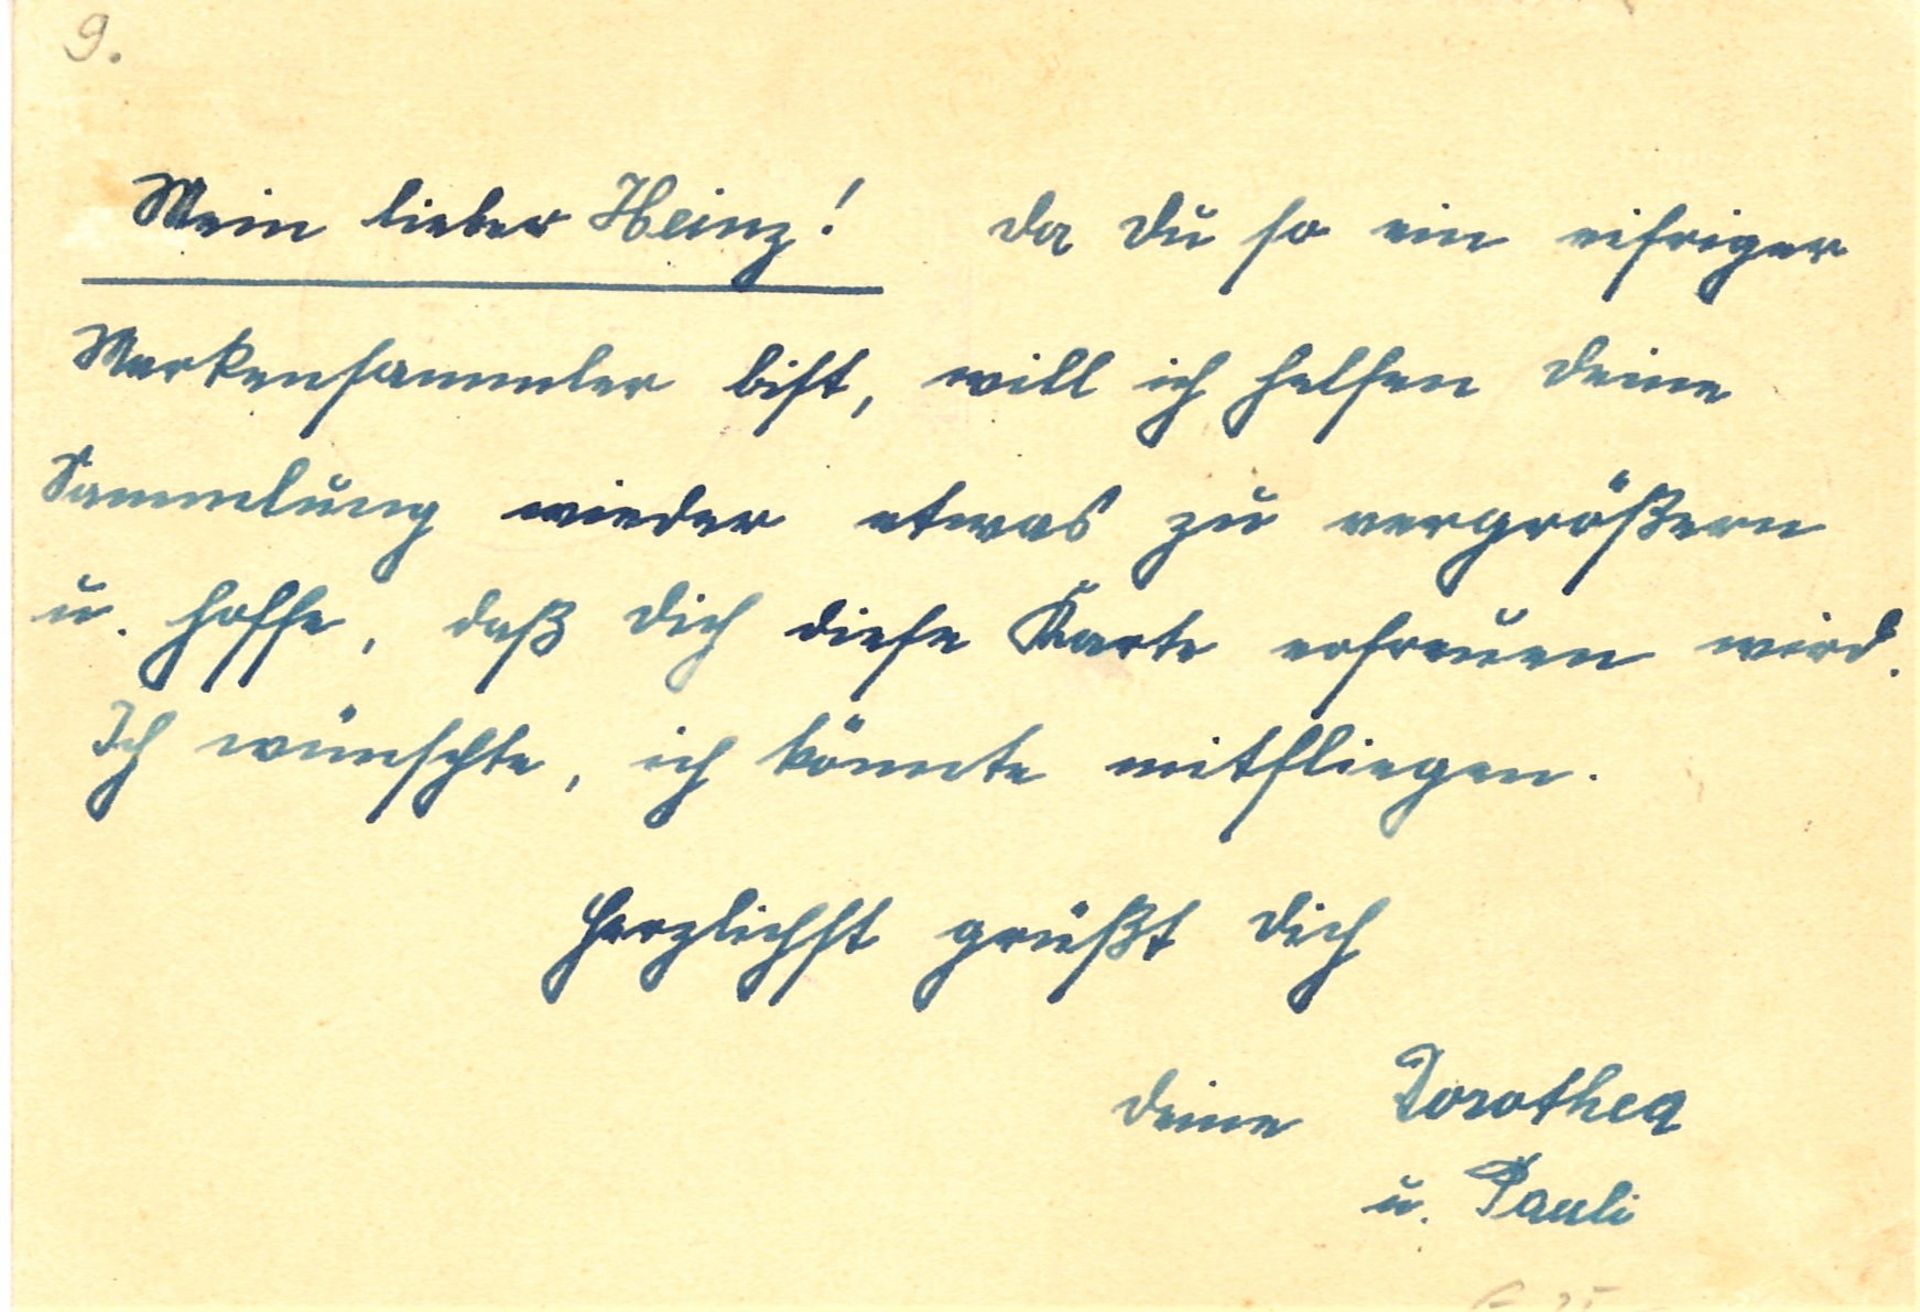 9.
Mein lieber Heinz! Da Du so ein eifriger
Markensammler bist, will ich helfen Deine
Sammlung wieder etwas zu vergrößern
u. hoffe, daß Dich diese Karte erfreuen wird.
Ich wünschte, ich könnte mitfliegen.
Herzlichst grüßt Dich
Deine Dorothea
u. Pauli